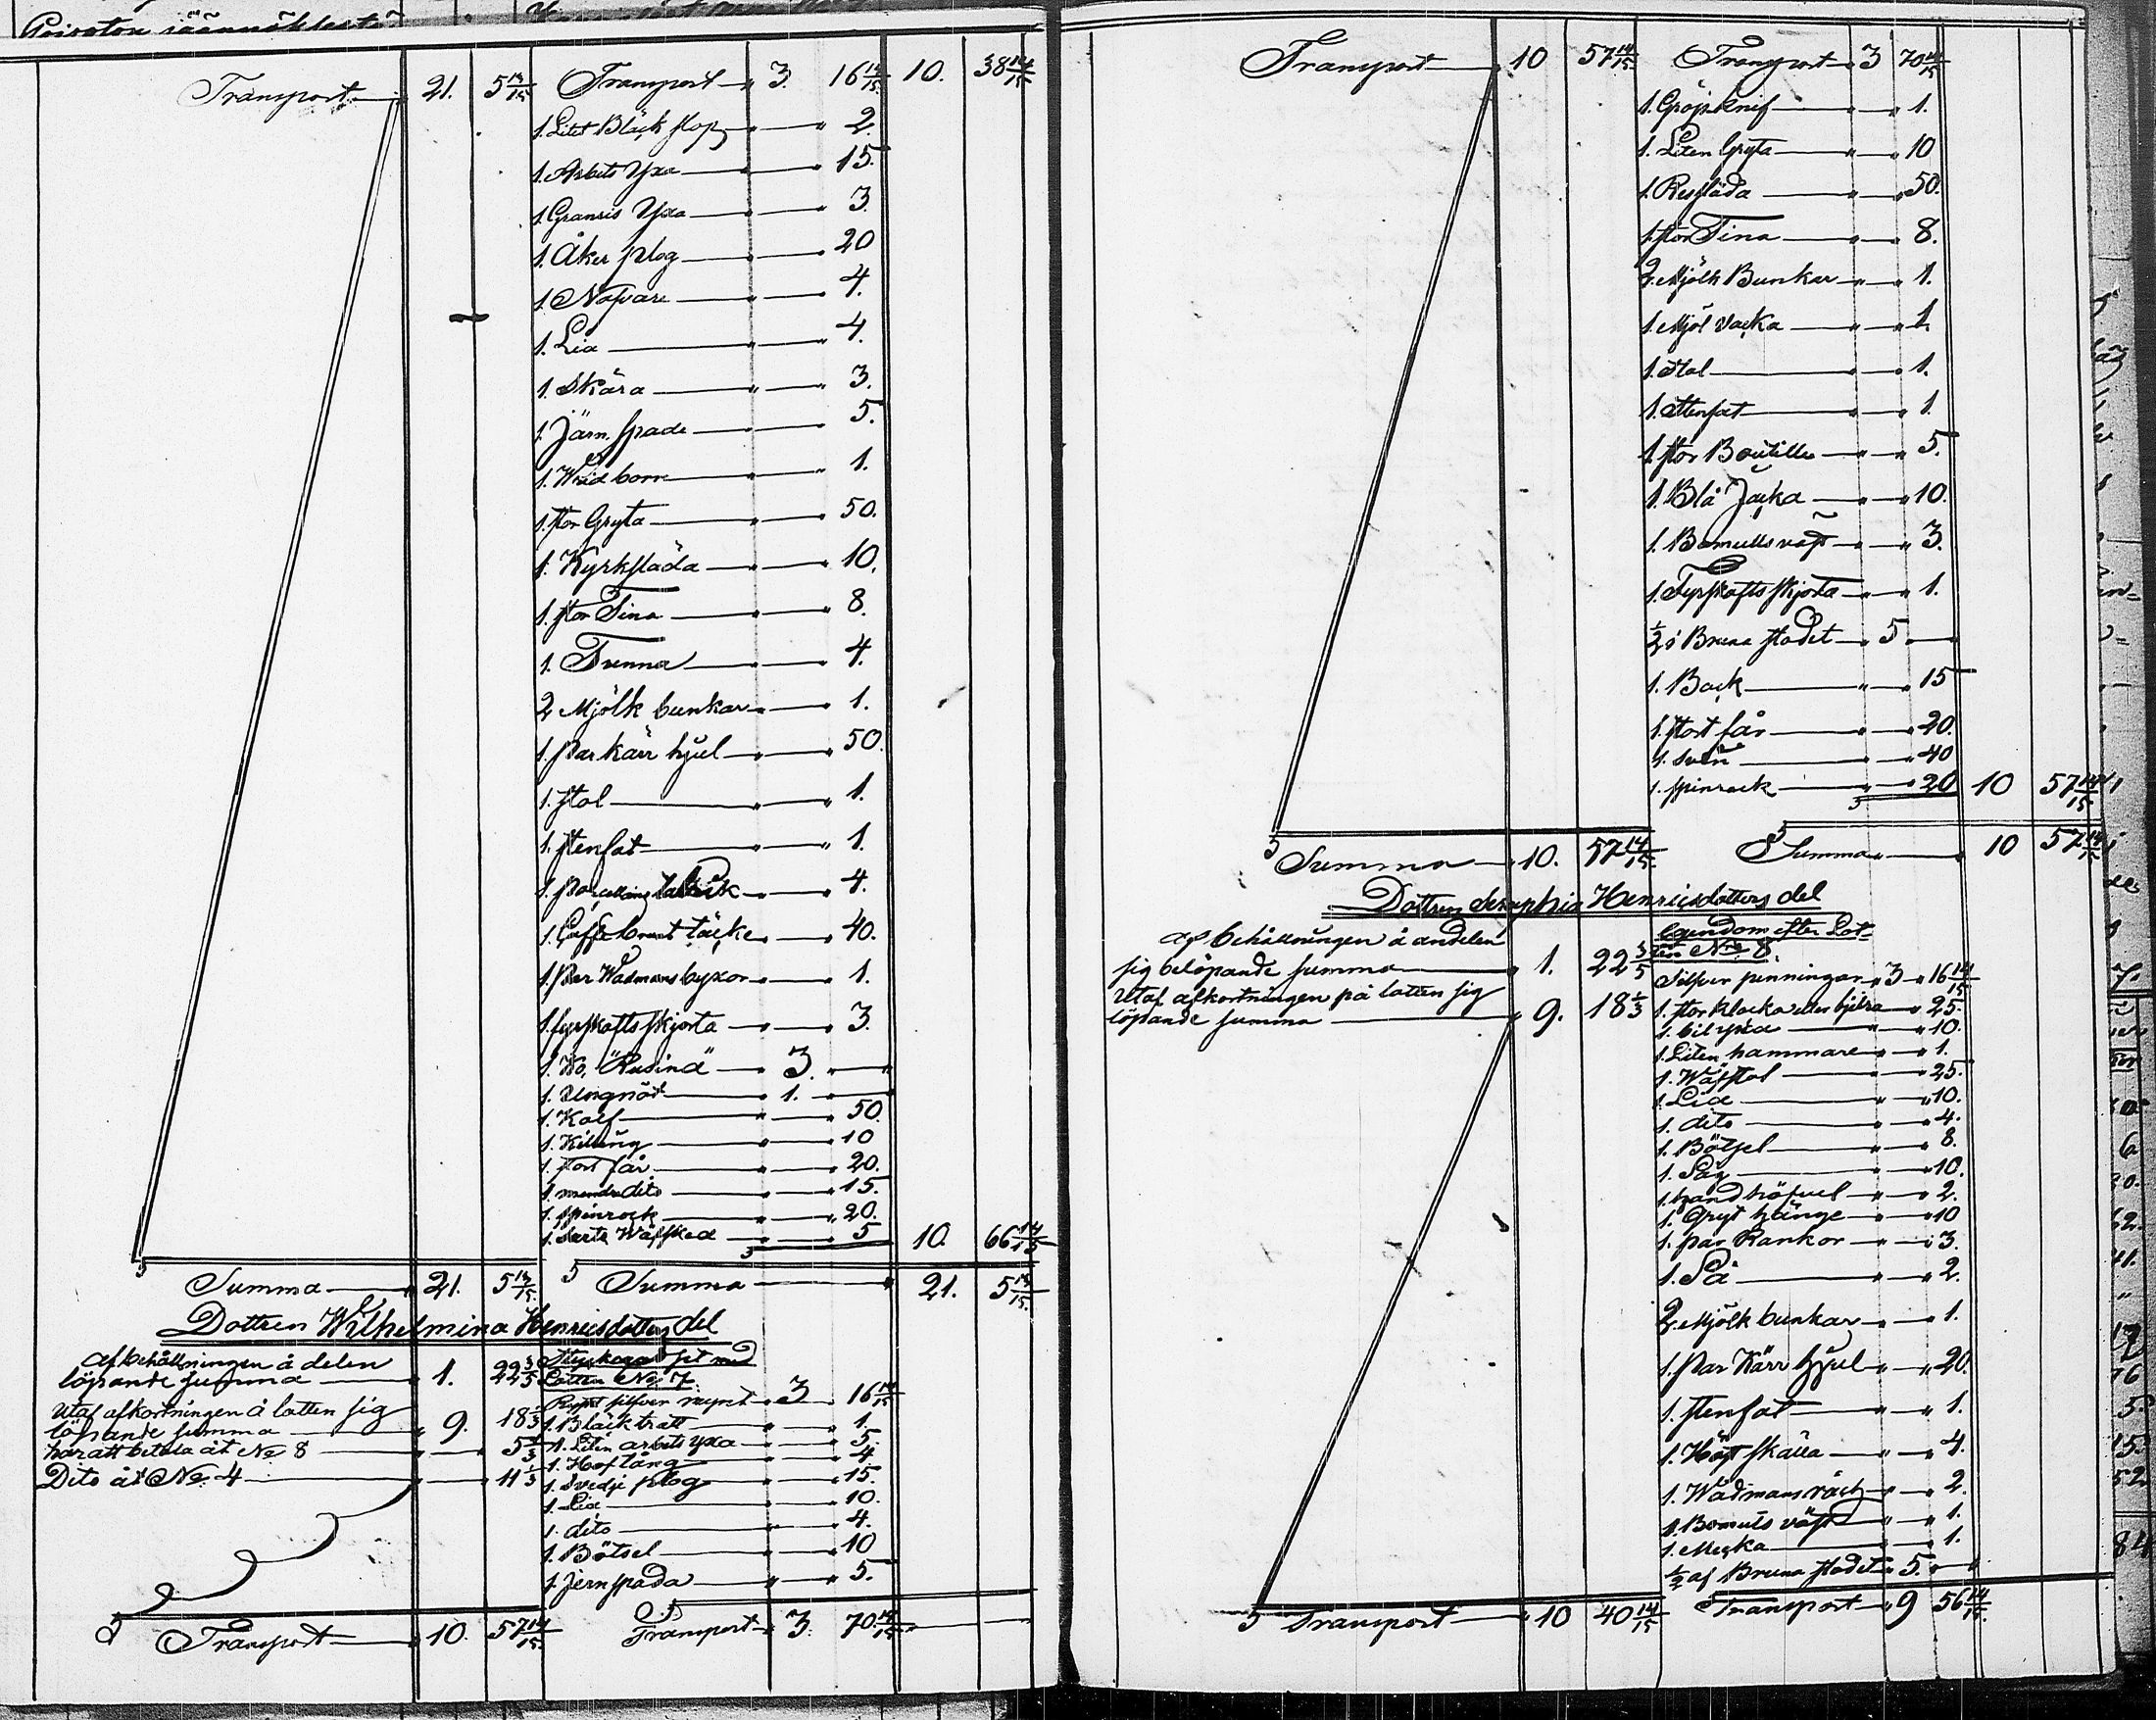 Transport 21. 5 14/15 Transport 3. 16 14/15 10. 38 14/15
1. Litet Bläck stop " 2.
1. Arbets Yxa " 15.
1. Granris Yxa " 3.
1. Åker plog " 20
1. Nafvare " 4.
1. Lia " 4.
1. Skära " 3.
1. Järn spade " 5.
1. Wridborr " 1.
1. stor Gryta " 50.
1. Kyrksläda " 10.
1. stor Tina " 8.
1. Tunna " 4.
2 Mjölk bunkar " 1.
1. par kärr hjul " 50.
1. stol " 1.
1. stenfat " 1.
1. 4.
1. täcke " 40.
1. par Wadmans byxor " 1.
1. fyrskafts skjorta " 3.
1. Ko, "Rusina" 3. "
1. Ungnöt 1. "
1. Kalf " 50.
1. Killing " 10
1. stort får " 20.
1. mindre dito " 15.
1. spinrock " 20.
1. Wäfsked " 5 10. 66 14/15
Summa 21. 5 14/15 Summa 21. 5 14/15
Dottren Wilhelmina Henricsdotters del
af behållningen å delen
löpande summa 1. 22 3/5
Utaf afkortningen å lotten sig
löpande summa 9. 18 1/3
har att betala åt No 8 5 2/3
Dito åt No. 4 11 1/3
Lotten No 7.
silfver mynt 3 16 14/15
1. Bläck tratt " 1.
1. Liten arbets yxa " 5.
1. Hoftång " 4
1. Svedje plog " 15.
1. Lia " 10.
1. dito " 4.
1. Bötsel " 10
1. Jern spada " 5.
Transport 10. 57 14/15 Transport 3. 70 14/15
Transport 10 57 14/15 Transport 3 70 14/15
1. Gröpknif " 1.
1. Liten Gryta " 10
1. Ressläda " 50.
1. stor Tina " 8.
2. Mjölk Bunkar " 1.
1. Mjöl Vacka " 1.
1. Stol " 1.
1. Stenfat " 1.
1. stor Boutille " 5.
1. Blå Jacka " 10.
1. Bomulls väst " 3.
1. Fyrskafts skjorta " 1.
1/2 i Bruna stodet 5
1. Back " 15
1. stort får " 20.
1. Svin " 40
1. spinrock " 20 10 57 14/15
Summa 10. 57 14/15 Summa 10 57 14/15
Dottren Seraphia Henricsdotters del
af behållningen å andelen
sig belöpande summa 1. 22 3/5
Utaf afkortningen på lotten sig
löpande summa 9. 18 1/3
Egendom efter Lot-
ten No 8.
Silfver penningar 3 16 14/15
1. stor Klocka eller bjälra 25.
1. bilyxa " 10.
1. Liten hammare " 1.
1. Wäfstol " 25.
1. Lia " 10.
1. dito " 4.
1. Bötsel " 8.
1. Såg " 10.
1. hand höfvel " 2.
1. Gryt hänge " 10
1. par Rankor " 3.
1. Så " 2.
2. Mjölk bunkar " 1.
1. par Kärr hjul " 20.
1. stenfat " 1.
1. skälla " 4.
1. Wadmans väst " 2.
1. Bomuls väst " 1.
1. " 1.
1/2 af Bruna stodet 5.
Transport 10 40 14/15 Transport 9 56 14/15